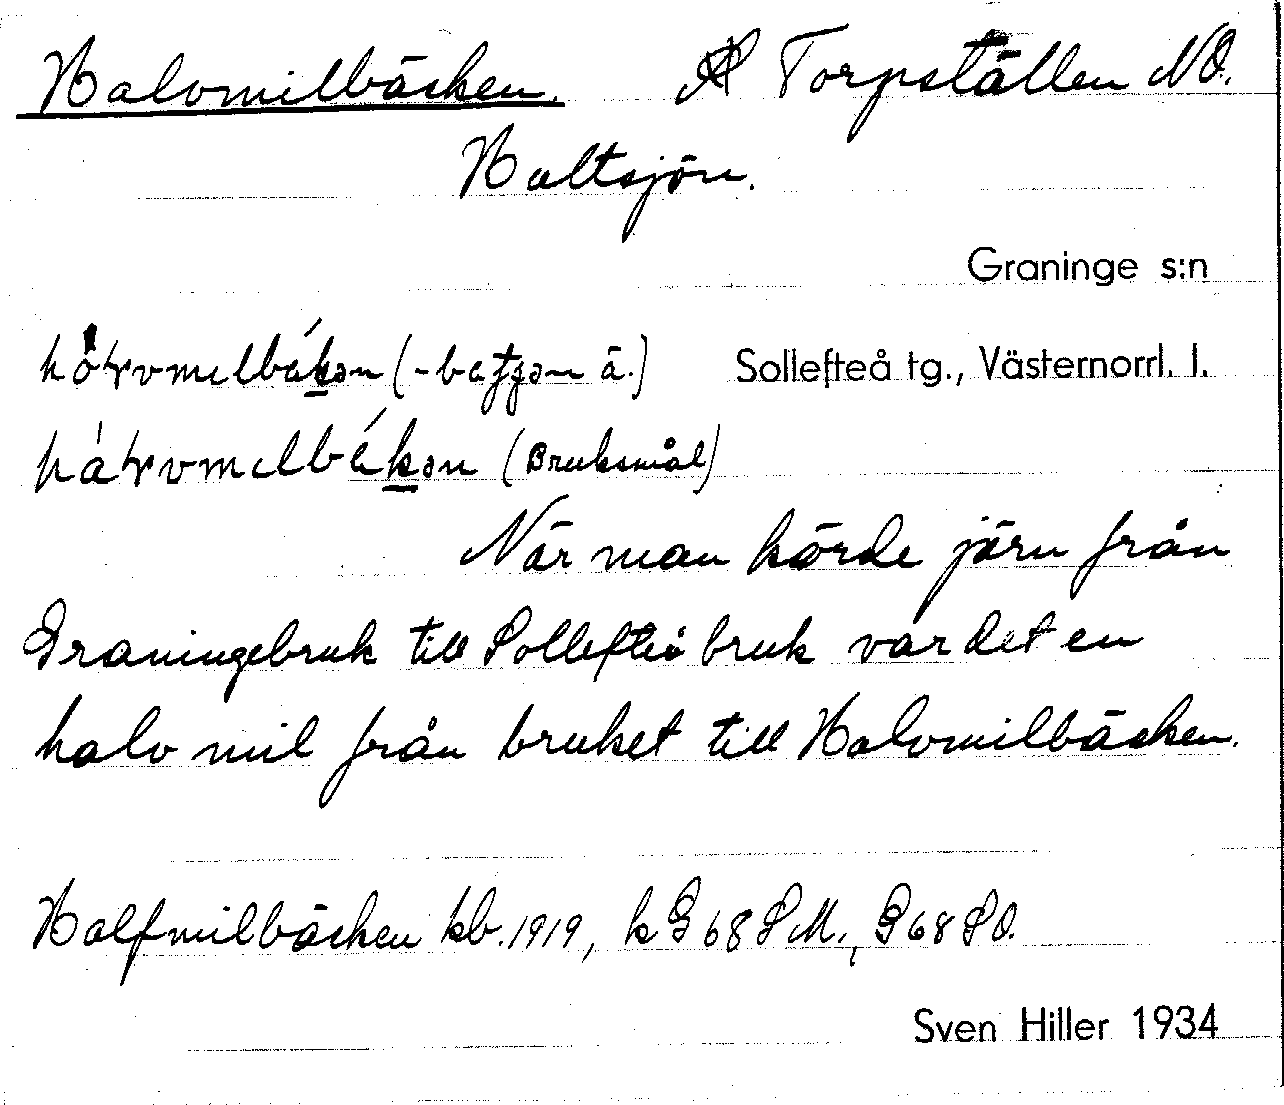 Halvmilbäcken. Torpställen NO.
Holtsjön.
Graninge s:n
(-
ä.) Sollefteå tg., Västernorrl. l.
(Bruksmål)
När man körde järn från
Graningebruk till Sollefteå bruk var det en
halv mil från bruket till Halvmilbäcken.
Halfmilbäcken kb. 1919, k G 68 S M., G 68 S O.
Sven Hiller 1934